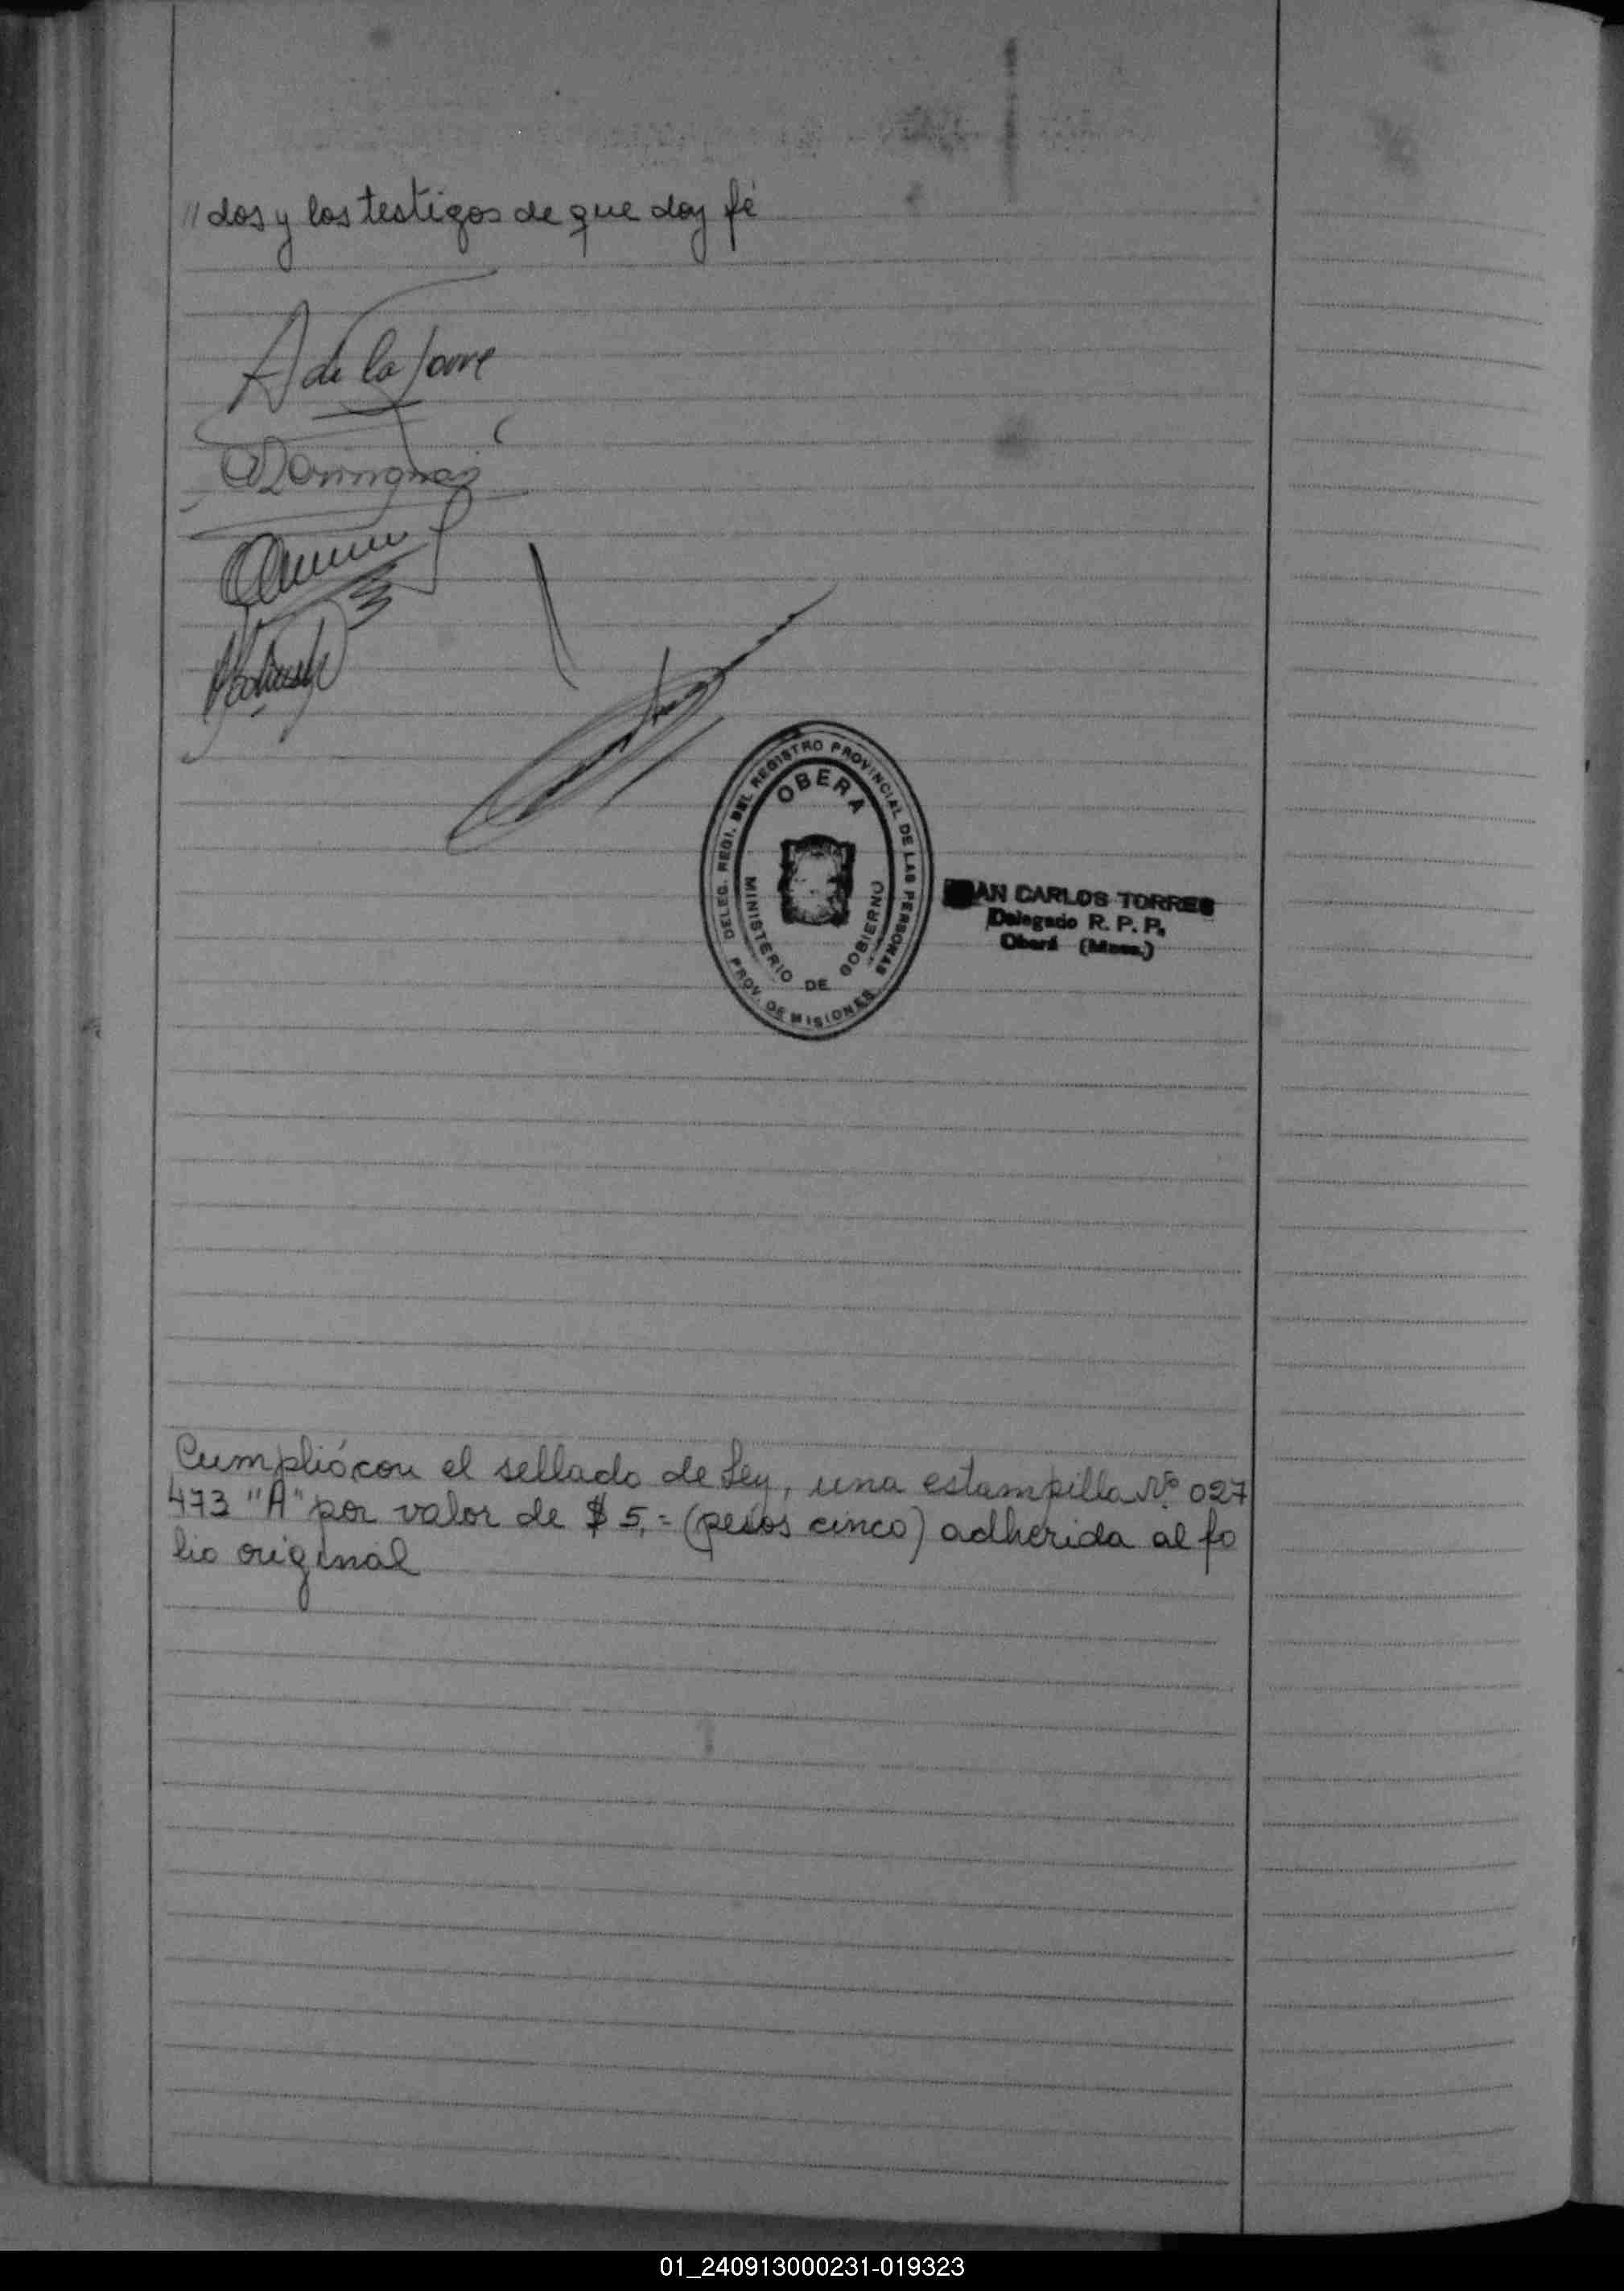 // dos y los testigos de que doy fé
A de la Torre
OBERA
DELEG. REGI. DEL REGISTRO PROVINCIAL DE LAS PERSONAS
MINISTERIO DE GOBIERNO
PROV. DE MISIONES
AN CARLOS TORRES
Delegado R. P. P.
Oberá (Mnes.)
Cumplió con el sellado de Ley, una estampilla Nº 027
473 "A" por valor de $ 5,= (pesos cinco) adherida al fo
lio original
01_240913000231-019323